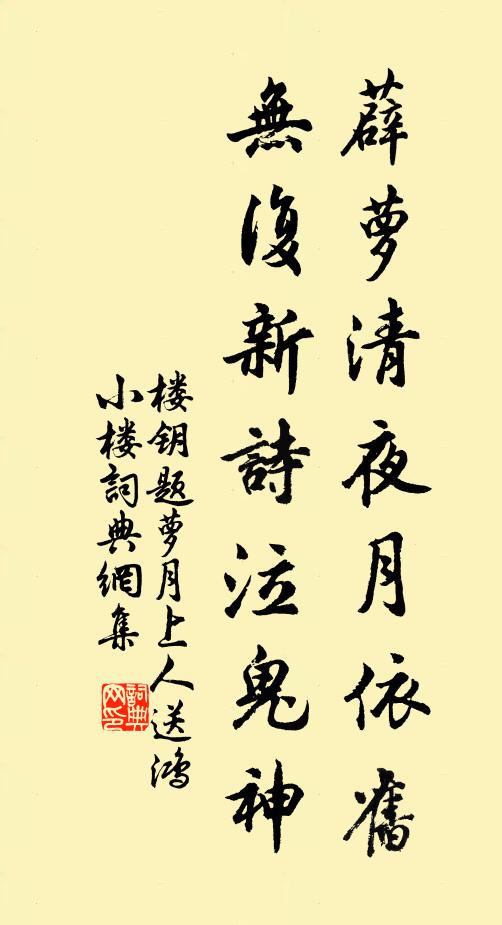 薜萝清夜月依舊
無復新詩泣鬼神
楼钥题萝月上人送鴻
小楼詞典網集
詞典网印